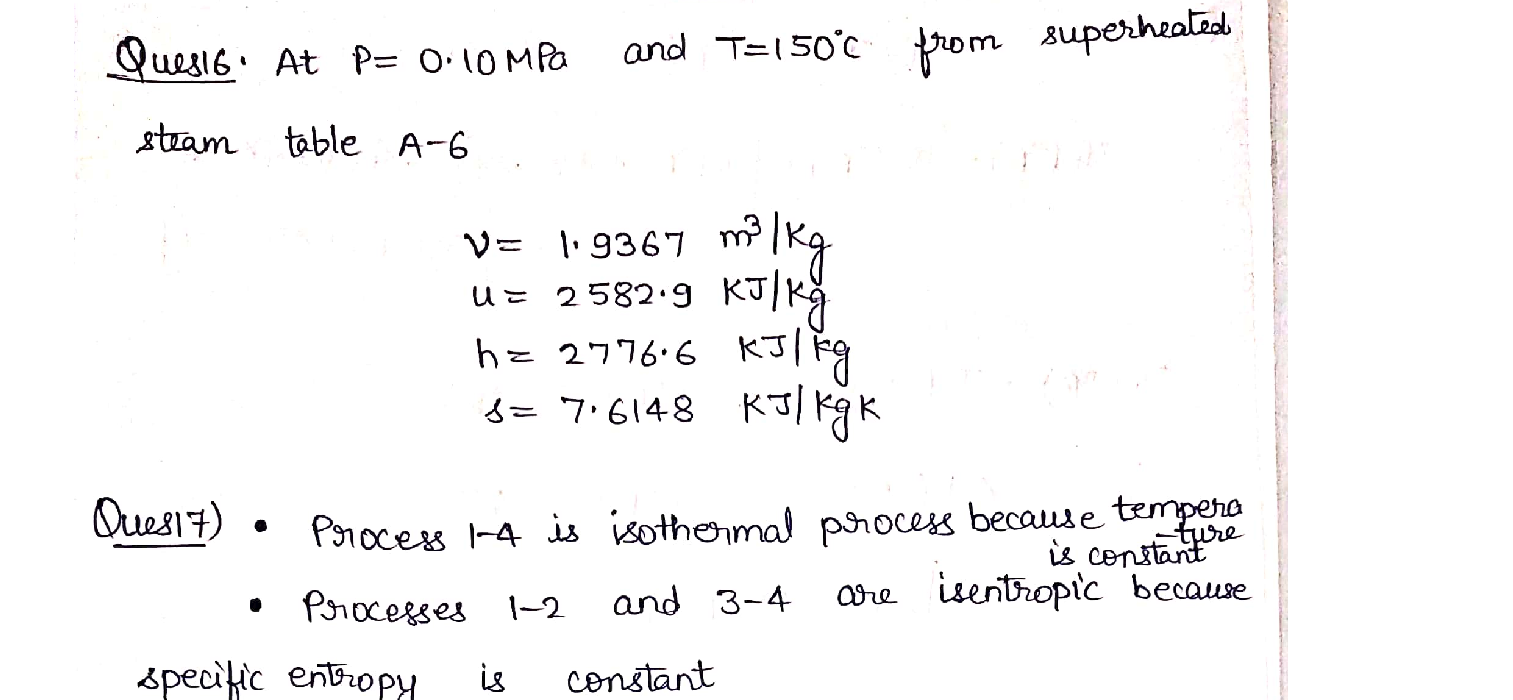 Ques16. At P= 0.10 MPa and T=150°C from superheated
steam table A-6
v= 1.9367 m³/kg
u= 2582.9 KJ/kg
h= 2776.6 KJ/kg
s= 7.6148 KJ/kgK
Ques17) • Process 1-4 is isothermal process because tempera
-ture
is constant
• Processes 1-2 and 3-4 are isentropic because
specific entropy is constant